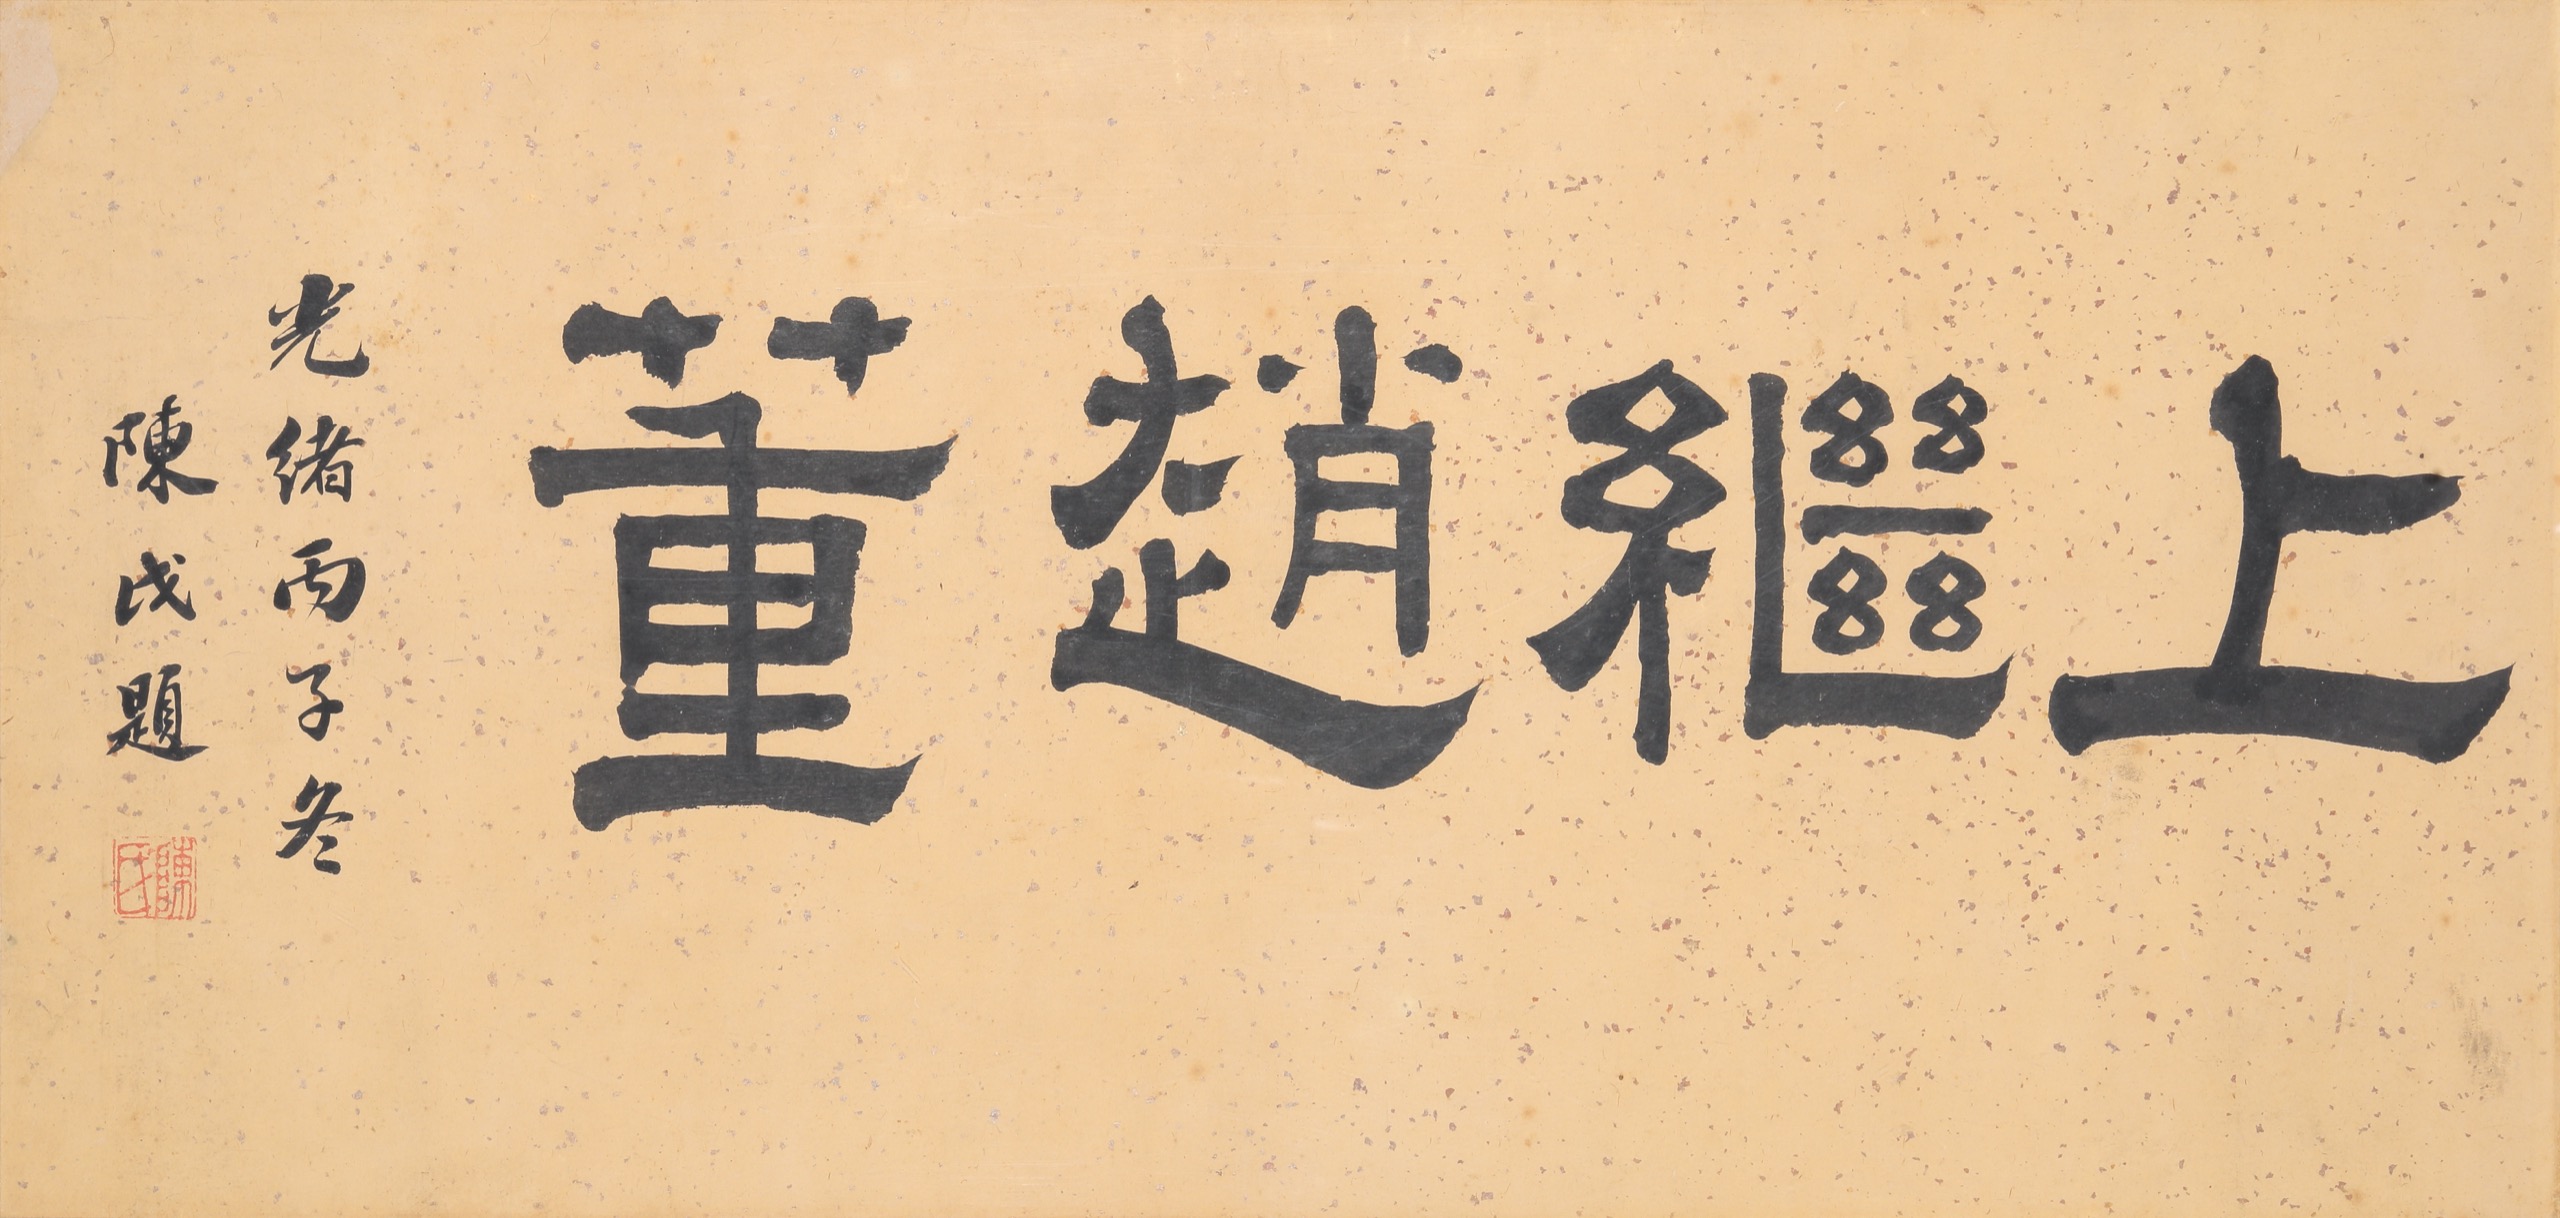 上繼趙董
光緒丙子冬
陳戊題
陳氏